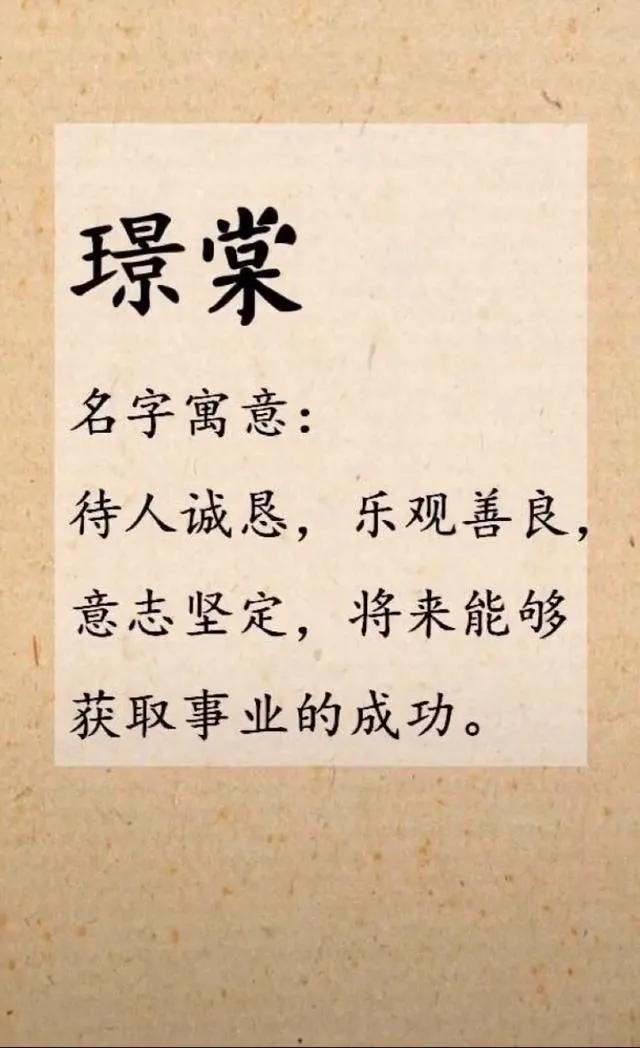 璟棠
名字寓意：
待人诚恳，乐观善良，
意志坚定，将来能够
获取事业的成功。